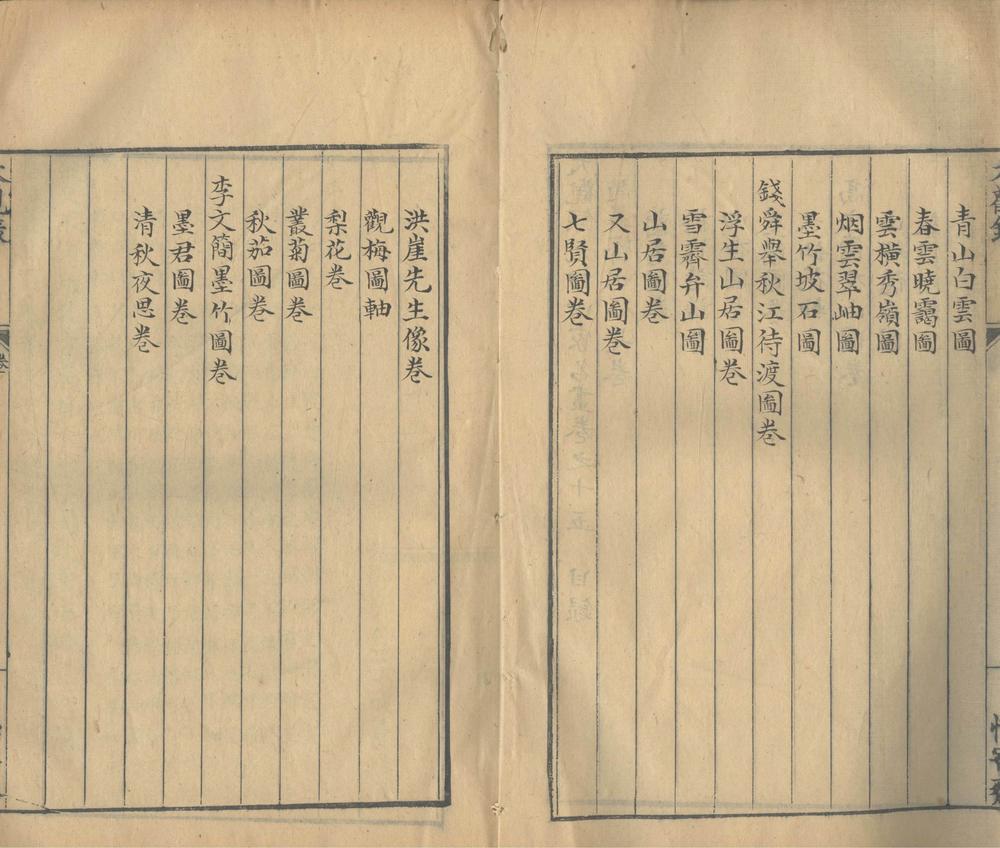 青山白雲圖
春雲曉靄圖
雲橫秀嶺圖
烟雲翠岫圖
墨竹坡石圖
錢舜舉秋江待渡圖卷
浮生山居圖卷
雪霽弁山圖
山居圖卷
又山居圖卷
七賢圖卷
洪崖先生像卷
觀梅圖軸
梨花卷
叢菊圖卷
秋茄圖卷
李文簡墨竹圖卷
墨君圖卷
清秋夜思卷